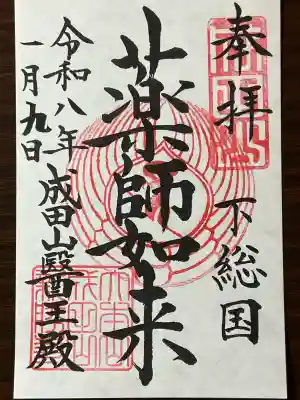 奉拝 下総国
薬師如来
令和八年
一月九日
成田山醫王殿